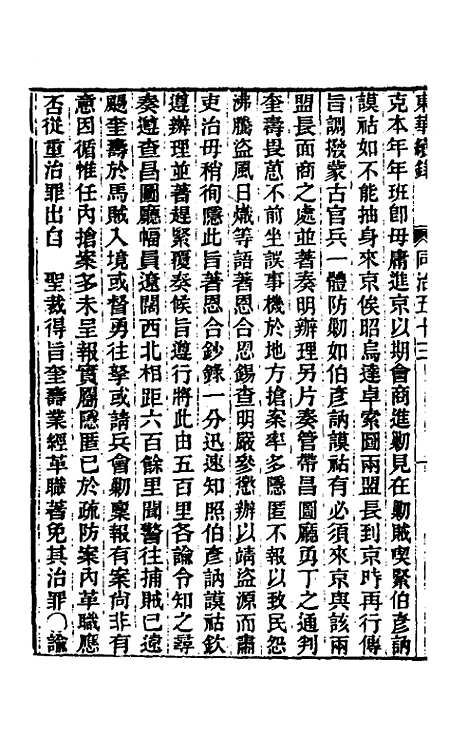 東華續錄　同治五十三
克本年年班卽毋庸進京以期會商進勦見在勦賊喫緊伯彥訥
謨祜如不能抽身來京俟昭烏達卓索圖兩盟長到京時再行傳
旨調撥蒙古官兵一體防勦如伯彥訥謨祜有必須來京與該兩
盟長面商之處並著奏明辦理另片奏管帶昌圖廳勇丁之通判
奎壽畏葸不前坐誤事機於地方搶案率多隱匿不報以致民怨
沸騰盜風日熾等語著恩合恩錫查明嚴參懲辦以靖盜源而肅
吏治毋稍徇隱此旨著恩合鈔錄一分迅速知照伯彥訥謨祜欽
遵辦理並著趕緊覆奏候旨遵行將此由五百里各諭令知之尋
奏遵查昌圖廳幅員遼闊西北相距六百餘里聞警往捕賊已遠
颺奎壽於馬賊入境或督勇往拏或請兵會勦稟報有案尚非有
意因循惟任內搶案多未呈報實屬隱匿已於疏防案內革職應
否從重治罪出自　聖裁得旨奎壽業經革職著免其治罪〇諭